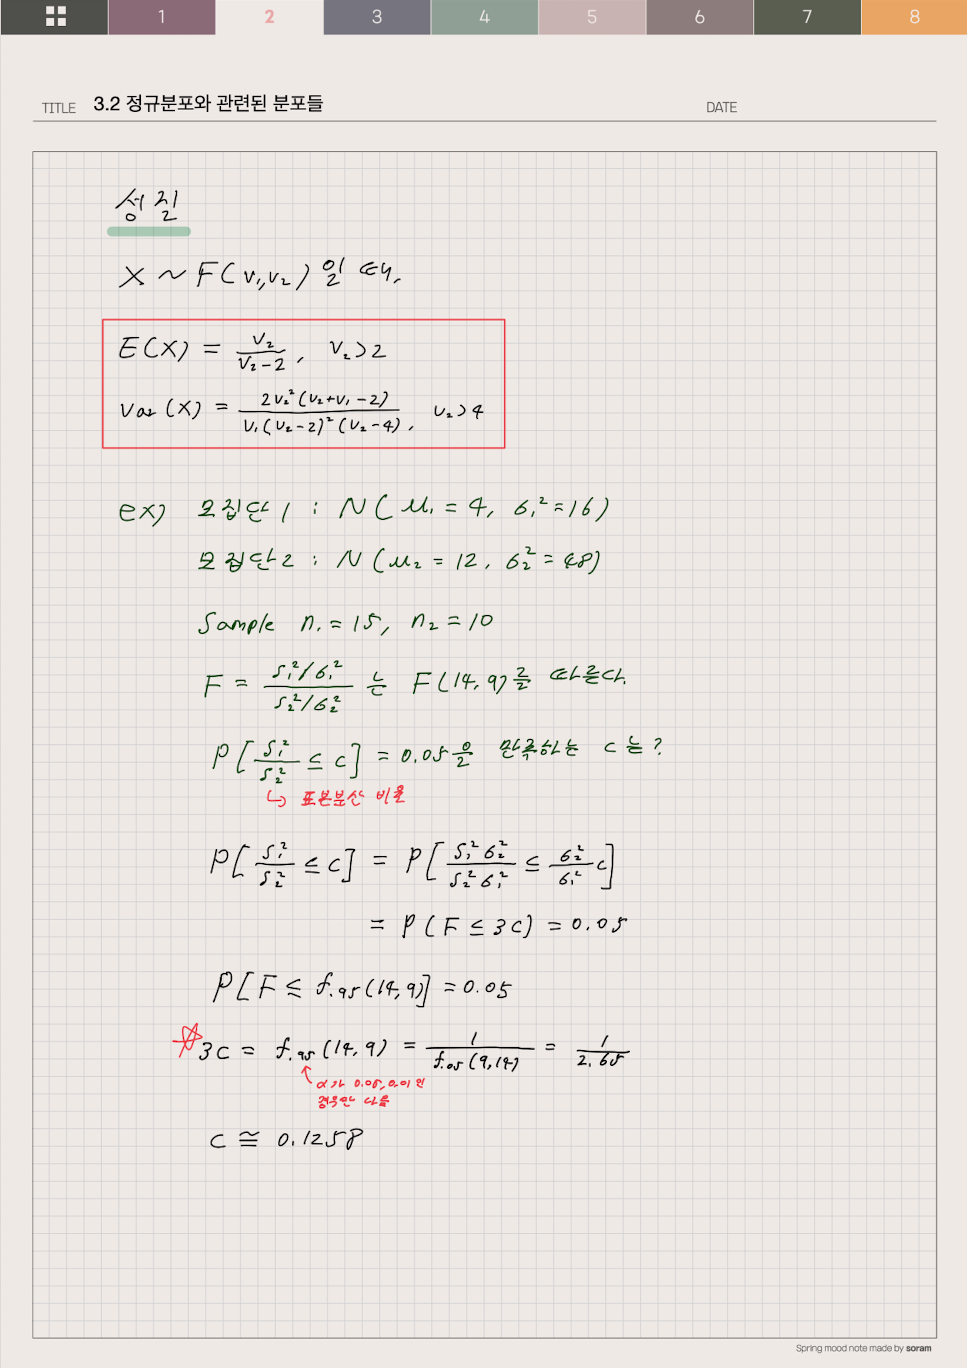 1 2 3 4 5 6 7 8
TITLE 3.2 정규분포와 관련된 분포들 DATE
성질
X ~ F(v₁,v₂) 일 때,
E(X) = v₂/(v₂-2), v₂>2
Var(X) = 2v₂²(v₂+v₁-2)/(v₁(v₂-2)²(v₂-4)), v₂>4
ex) 모집단1 : N(μ₁=4, σ₁²=16)
모집단2 : N(μ₂=12, σ₂²=48)
Sample n₁=15, n₂=10
F = (S₁²/σ₁²)/(S₂²/σ₂²) 는 F(14,9)를 따른다.
P[S₁²/S₂² ≤ c] = 0.05을 만족하는 c는?
↳ 표본분산 비율
P[S₁²/S₂² ≤ c] = P[S₁²σ₂²/S₂²σ₁² ≤ σ₂²/σ₁² c]
= P(F ≤ 3c) = 0.05
P[F ≤ f.95(14,9)] = 0.05
☆3c = f.95(14,9) = 1/f.05(9,14) = 1/2.65
α가 0.05, 0.01인
경우만 나옴
c ≅ 0.1258
Spring mood note made by soram